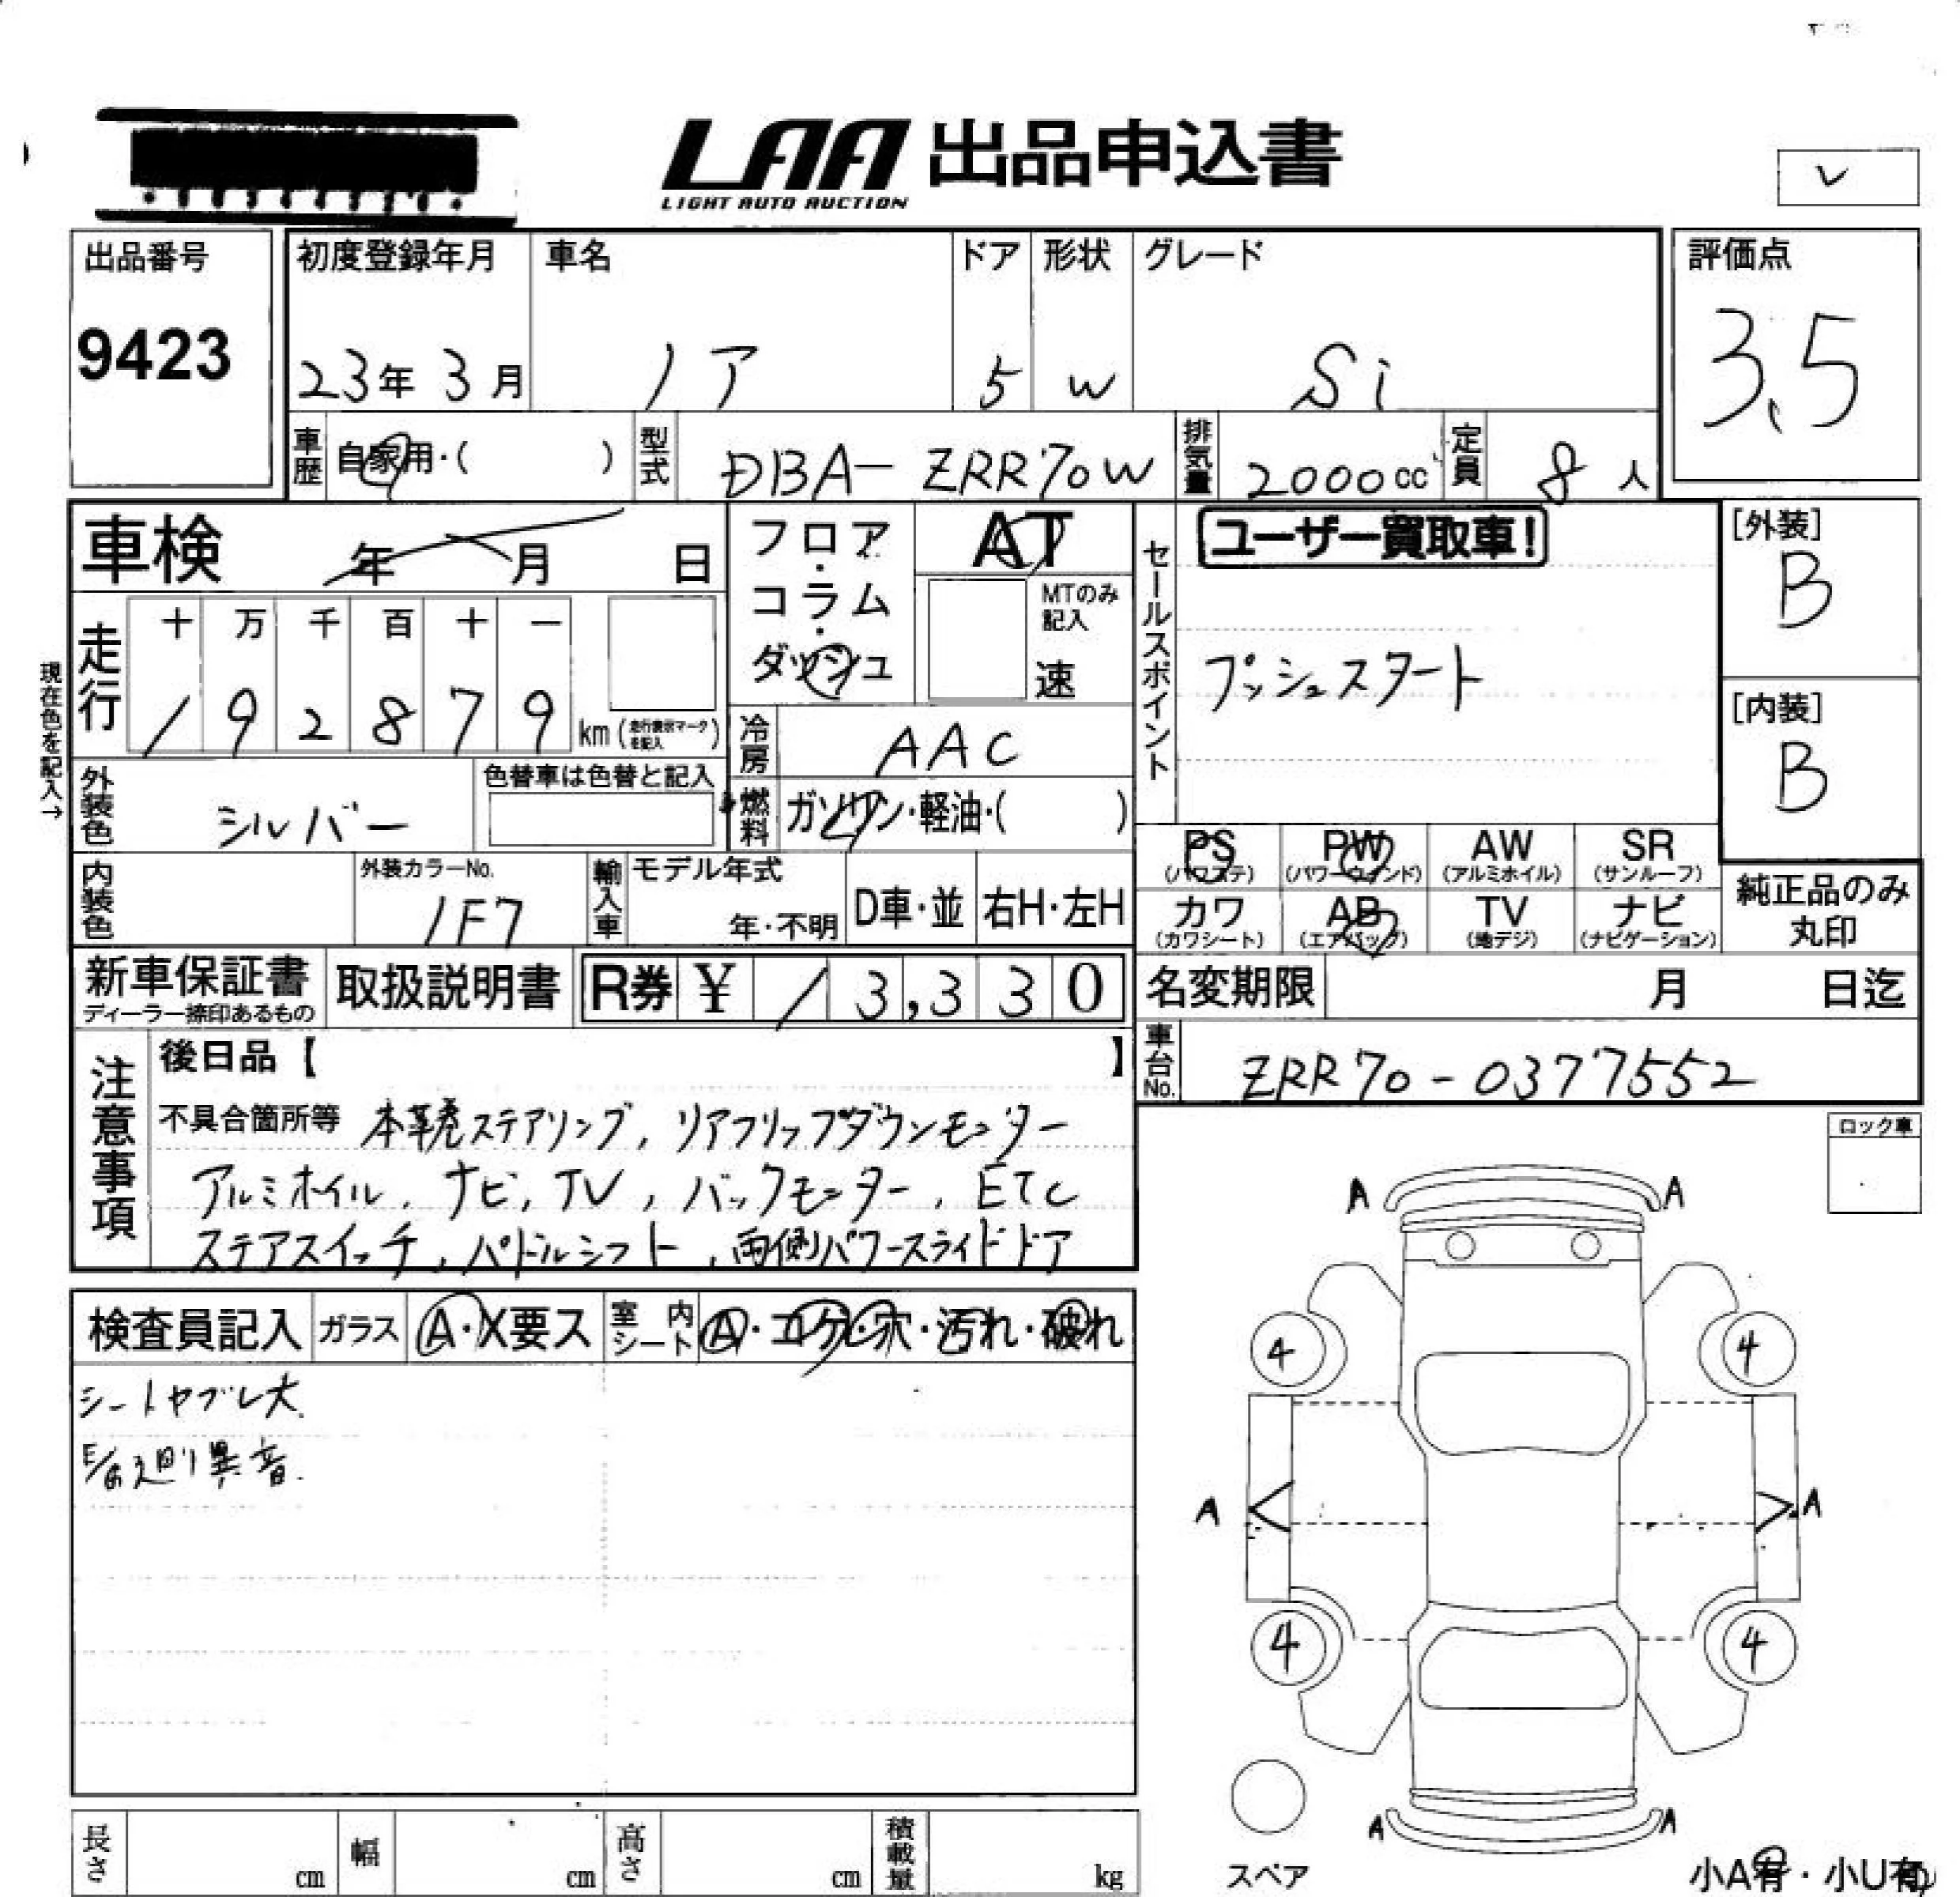 LAA 出品申込書
LIGHT AUTO AUCTION
レ
出品番号
9423
初度登録年月
23年 3月
車名
ノア
ドア
5
形状
W
グレード
Si
評価点
3.5
車歴 自家用・( )
型式 DBA-ZRR70W
排気量 2000cc
定員 8人
車検 年 月 日
フロア・コラム・ダッシュ
AT
MTのみ記入
速
セールスポイント
ユーザー買取車!
プッシュスタート
[外装]
B
[内装]
B
現在色を記入→
走行
十 万 千 百 十 一
1 9 2 8 7 9 km (走行表示マークを記入)
冷房 AAC
外装色 シルバー
色替車は色替と記入
燃料 ガソリン・軽油・( )
内装色
外装カラーNo.
1F7
輸入車
モデル年式
年・不明
D車・並
右H・左H
PS PW AW SR
(パワステ) (パワーウィンド) (アルミホイル) (サンルーフ)
カワ AB TV ナビ
(カワシート) (エアバック) (地デジ) (ナビゲーション)
純正品のみ
丸印
新車保証書
ディーラー捺印あるもの
取扱説明書
R券 ¥ 13,330
名変期限 月 日迄
車台No. ZRR70-0377552
注意事項
後日品【 】
不具合箇所等 本革巻ステアリング, リアフリップダウンモニター
アルミホイル, ナビ, TV, バックモニター, ETC
ステアスイッチ, パドルシフト, 両側パワースライドドア
ロック車
検査員記入 ガラス A・X要ス 室内シート A・コゲ・穴・汚れ・破れ
シートヤブレ大
異音
A A
4 4
A A
4 4
A A
スペア
小A有・小U有
長さ cm 幅 cm 高さ cm 積載量 kg